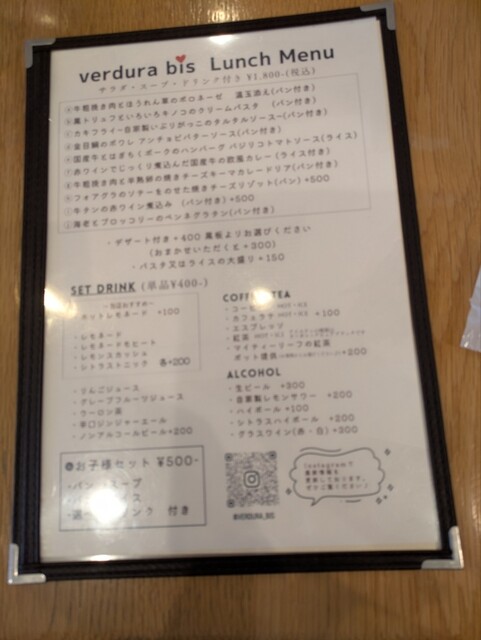 verdura bis Lunch Menu
サラダ・スープ・ドリンク付き ¥1,800-(税込)
牛粗挽き肉とほうれん草のボロネーゼ 温玉添え(パン付き)
黒トリュフといろいろキノコのクリームパスタ (パン付き)
カキフライ-自家製いぶりがっこのタルタルソース-(パン付き)
金目鯛のポワレ アンチョビバターソース(パン付き)
国産牛とはぎちくポークのハンバーグ バジリコトマトソース(ライス)
赤ワインでじっくり煮込んだ国産牛の欧風カレー(ライス付き)
牛粗挽き肉と半熟卵の焼きチーズキーマカレードリア(パン付き)
フォアグラのソテーをのせた焼きチーズリゾット(パン)+500
牛タンの赤ワイン煮込み (パン付き)+500
海老とブロッコリーのペンネグラタン(パン付き)
・デザート付き+400 黒板よりお選びください
(おまかせいただくと+300)
・パスタ又はライスの大盛り+150
SET DRINK (単品¥400-)
~当店おすすめ~
ホットレモネード +100
・レモネード
・レモネードモヒート
・レモンスカッシュ
・シトラストニック 各+200
・りんごジュース
・グレープフルーツジュース
・ウーロン茶
・辛口ジンジャーエール
・ノンアルコールビール+200
COFFEE TEA
・コーヒー HOT・ICE
・カフェラテ HOT・ICE +100
・エスプレッソ
・紅茶 HOT・ICE
・マイティーリーフの紅茶
ポット提供 +200
ALCOHOL
・生ビール +300
・自家製レモンサワー +200
・ハイボール +100
・シトラスハイボール +200
・グラスワイン(赤・白) +300
お子様セット ¥500-
・パン スープ
イス
・選 ンク 付き
@VERDURA_BIS
Instagramで
最新情報を
更新しております。
ぜひご覧ください♪